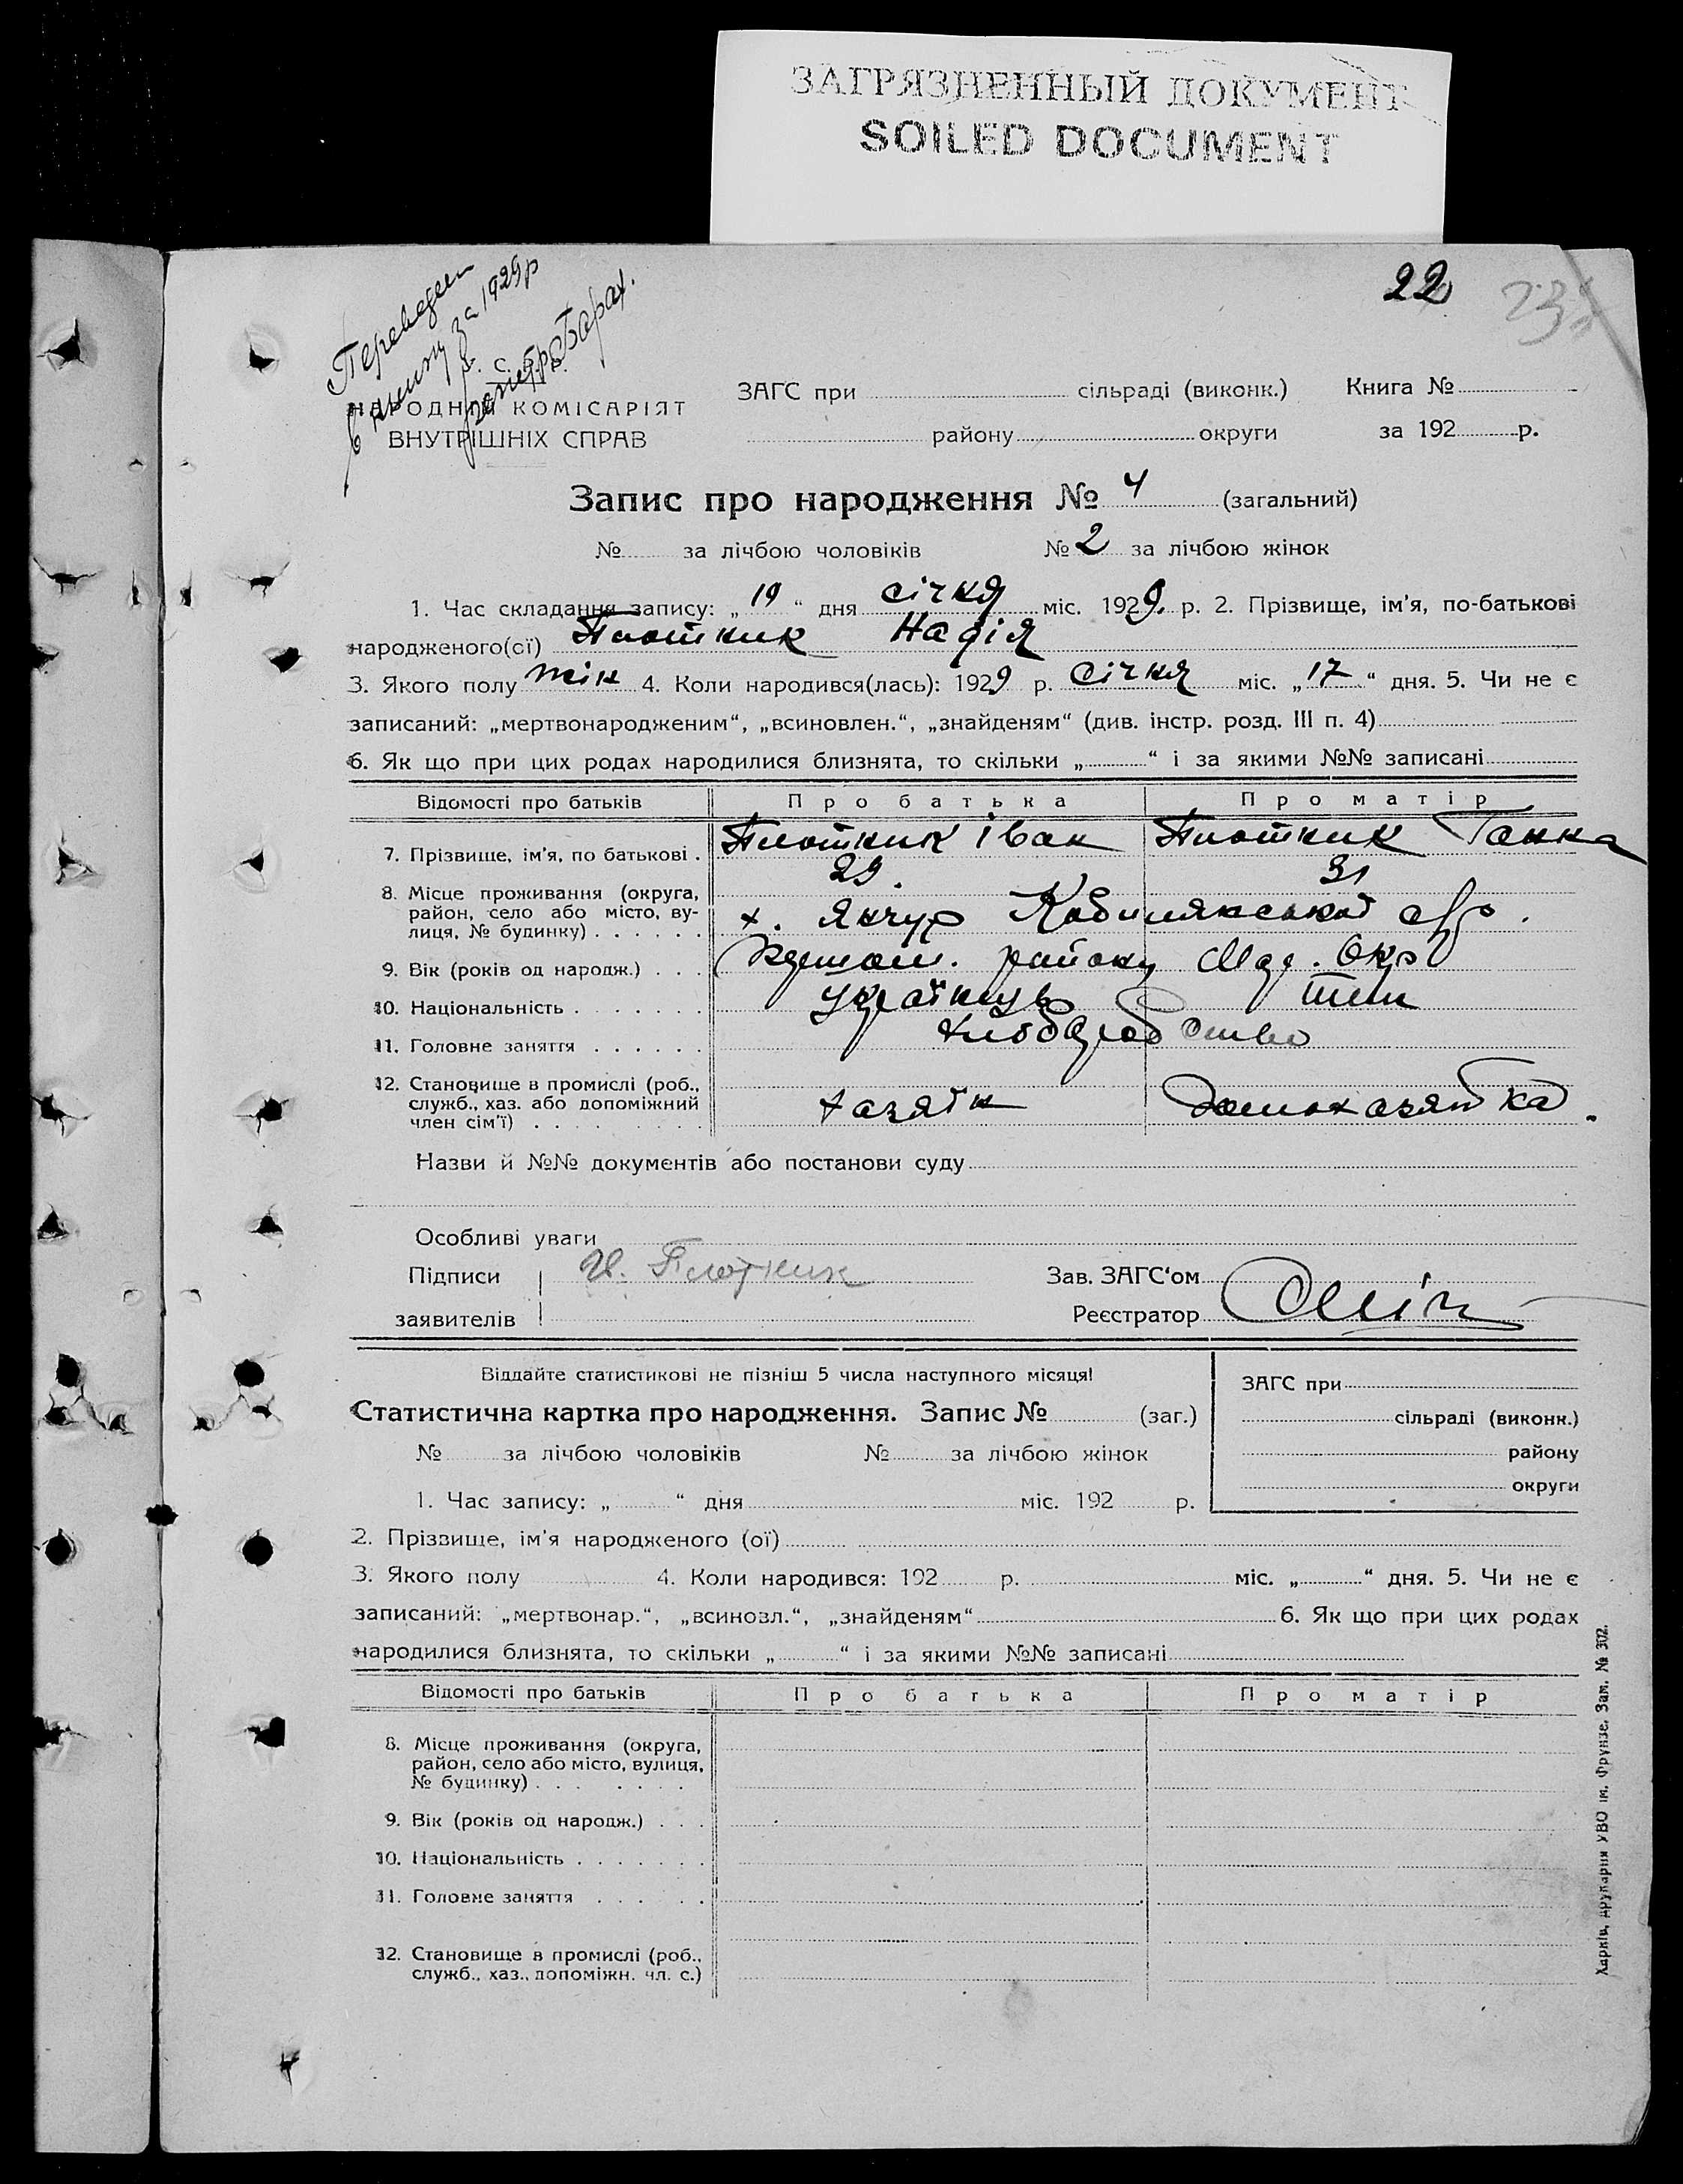 ЗАГРЯЗНЕННЫЙ ДОКУМЕНТ
SOILED DOCUMENT
22
23
Переведен
за 1929р
НАРОДНІЙ КОМІСАРІЯТ
ВНУТРІШНІХ СПРАВ
ЗАГС при сільраді (виконк.) Книга №
району округи за 192 р.
Запис про народження № 4 (загальний)
№ за лічбою чоловіків № 2 за лічбою жінок
1. Час складання запису: „19“ дня січня міс. 1929. р. 2. Прізвище, ім'я, по-батькові
народженого(ої) Плотник Надія
3. Якого полу жін 4. Коли народився(лась): 1929 р. Січня міс. „17“ дня. 5. Чи не є
записаний: „мертвонародженим“, „всиновлен.“, „знайденям“ (див. інстр. розд. III п. 4)
6. Як що при цих родах народилися близнята, то скільки „ “ і за якими №№ записані
Відомості про батьків Про батька Про матір
7. Прізвище, ім'я, по батькові . Плотник Іван Плотник Ганна
29. 31
8. Місце проживання (округа,
район, село або місто, ву-
лиця, № будинку) . . . . . . х. Янчур Кобилякської с/р.
9. Вік (років од народж.) . . . району Окр
10. Національність . . . . . . . українців
11. Головне заняття . . . . . . хліборобство
12. Становище в промислі (роб.,
служб., хаз. або допоміжний
член сім'ї) . . . . . . . . . хазяїн домохазяйка.
Назви й №№ документів або постанови суду
Особливі уваги
Підписи И. Плотник Зав. ЗАГС'ом
заявителів Реєстратор
Віддайте статистикові не пізніш 5 числа наступного місяця!
Статистична картка про народження. Запис № (заг.)
№ за лічбою чоловіків № за лічбою жінок
1. Час запису: „ “ дня міс. 192 р.
ЗАГС при
сільраді (виконк.)
району
округи
2. Прізвище, ім'я народженого (ої)
3. Якого полу 4. Коли народився: 192 р. міс. „ “ дня. 5. Чи не є
записаний: „мертвонар.“, „всиновл.“, „знайденям“ 6. Як що при цих родах
народилися близнята, то скільки „ “ і за якими №№ записані
Відомості про батьків Про батька Про матір
8. Місце проживання (округа,
район, село або місто, вулиця,
№ будинку) . . . . . . .
9. Вік (років од народж.) . . .
10. Національність . . . . . . .
11. Головне заняття . . . . . .
12. Становище в промислі (роб.,
служб., хаз., допоміжн. чл. с.)
Харків, друкарня УВО ім. Фрунзе. Зам. № 302.